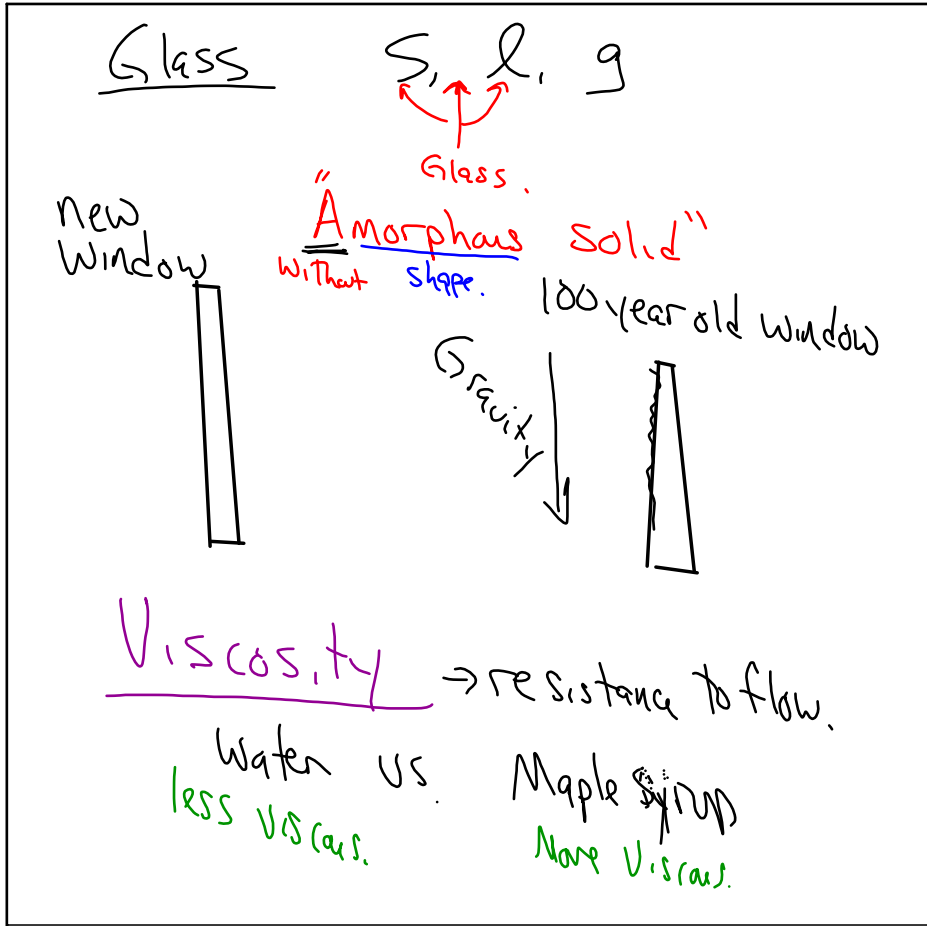 Glass S, l, g
Glass.
"Amorphous solid"
without shape.
new
window
100 year old window
Gravity
Viscosity → resistance to flow.
Water vs. Maple Syrup
less viscous. More Viscous.